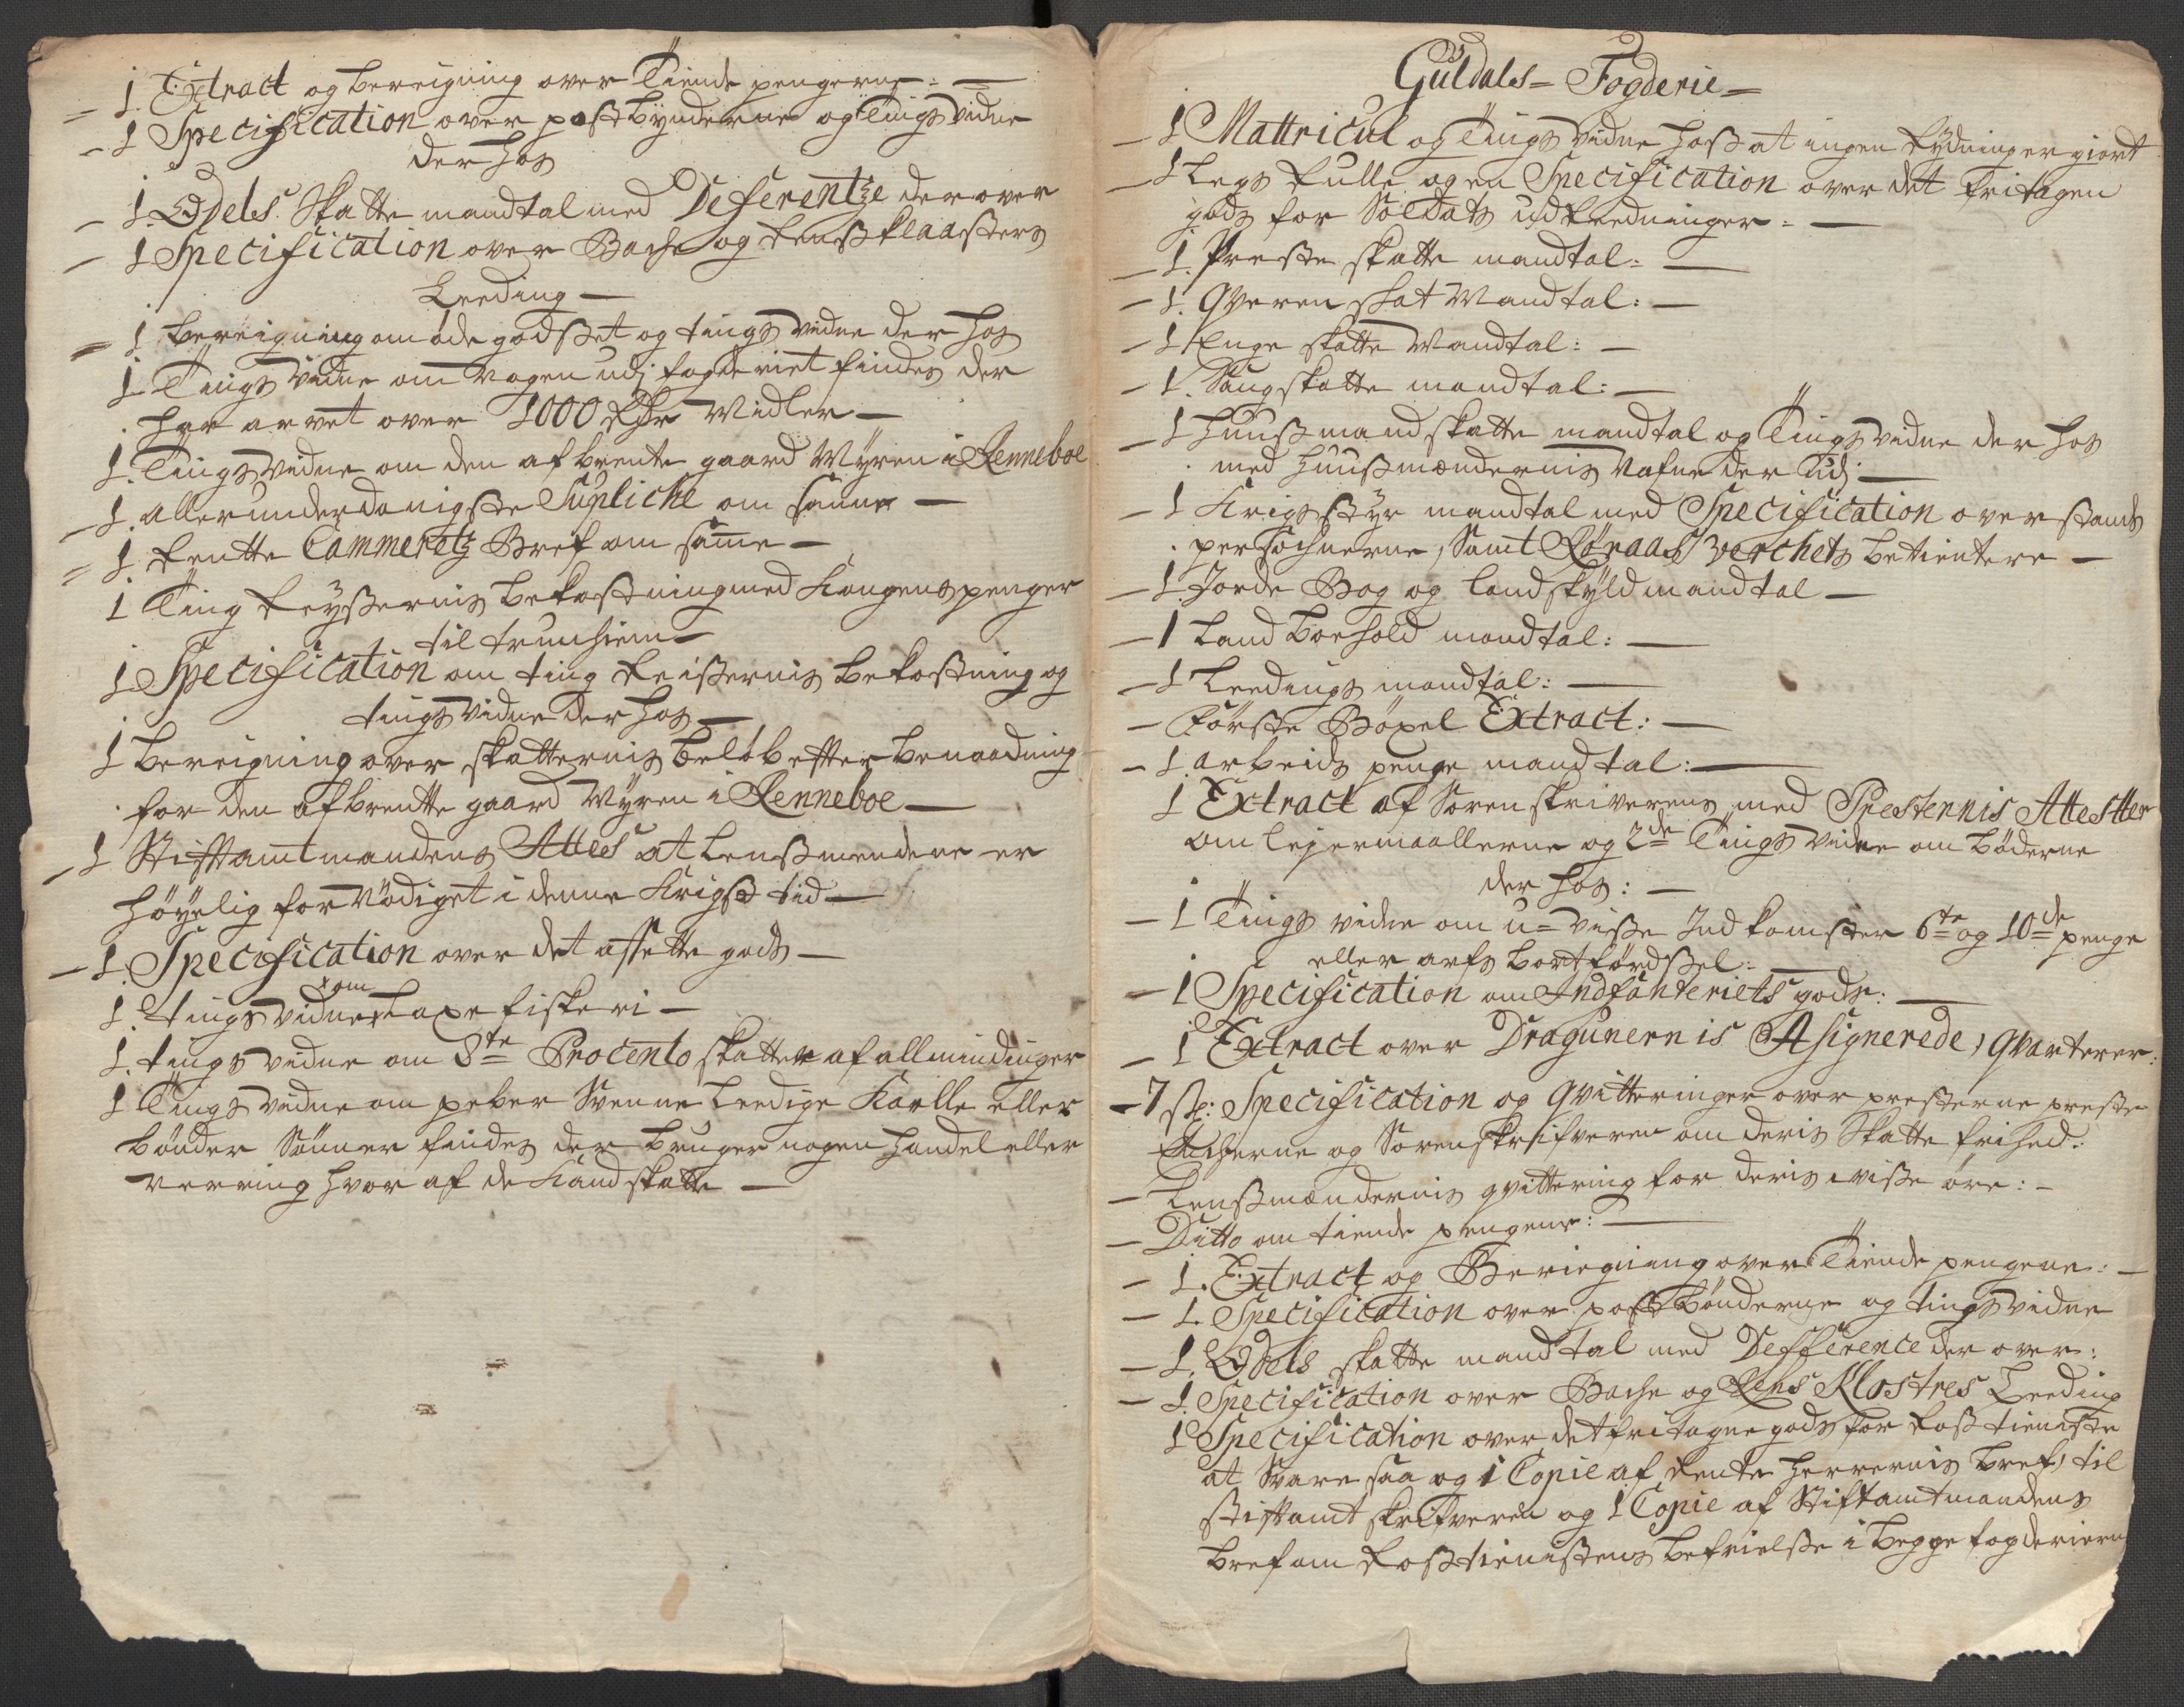 – 1 Extract og bereigning over Tiende pengerne: —
– 1 Specification over postbynderne og Tings vidne
der hos
– 1. Odels Skatte mandtal med Deferentze der over
– 1 Specification over Bache og Renßklaasters
Leeding —
– 1 bereigning om øde godset og tings vidne der hos
1 Tings vidne om nogen udj fogderiet findes der
har arvet over 1000 Rdr Midler —
1. Tings vidne om den afbrente gaard Myren i Renneboe
– 1. allerunderdanigste Supliche om samme —
– 1. Rentte Cammeretz Bref om samme —
1 Ting Reyßernis bekostning med Kongens penger
til trunhiem —
1 Specification om ting Reißernis bekostning og
tings vidne der hos —
1 bereigning over skatternis beløb efter benaadning
for den afbrentte gaard Myren i Renneboe —
– 1 Stiftamtmandens Attest at Lensmendene er
høyelig fornødiget i denne Krigs tid —
– 1. Specification over det assette gods —
om
1. Tings vidne Laxe fiskeri —
1. tings vidne om 8te Procento skatter af allmindinger
1 Tings vidne om peber Svenne Leedige Karlle eller
bønder Sønner findes der bruger nogen Handel eller
nerring hvor af de Kand skatte —
Guldals – Fogderie –
– 1 Mattricul og Tings vidne hos at ingen Rydninger giort
– 1 Legs Rulle og en Specification over det fritagen
gods for Soldats udreedninger: —
– 1. Preste skatte mandtal: —
– 1. Qveren skat Mandtal: —
– 1 Enge skatte Mandtal: —
– 1. Saugskatte mandtal: —
– 1 Huußmand skatte mandtal og Tings vidne der hos
med Huußmændernis Nafne der udj: —
– 1 Krigsstyr mandtal med Specification over stands
persohnerne, Samt Røraas Verchets betientere —
– 1. Jorde Bog og landskyld mandtal —
– 1 Land Boehold mandtal: —
– 1 Leedings mandtal: —
– Første Bøxel Extract: —
– 1. arbeids penge mandtal: —
1 Extract af Sorenskriverens med Prestennis Attester
om lejermaallerne og 2de Tings vidne om bøderne
der hos: —
– 1 Tings vidne om u-visse Ind komster 6te og 10de penge
eller arfs bortførdsel: —
– 1 Specification om Indfanteriets gods: —
– 1 Extract over Dragunernis Asignerede, Qvarterer:
– 7 st: Specification og Qvitteringer over presterne preste
Enckerne og Sorenskrifveren om deris Skatte frihed:
– Lensmændernis qvittering for deris visse øre: –
– Ditto om tiende pengene: —
– 1. Extract og Beriegning over Tiende pengene: —
– 1. Specification over postbønderne og tings vidne
– 1. Odels skatte mandtal med Defference der over:
– 1. Specification over Bache og Rens Klostres Leeding
1 Specification over det fritagne gods for Roß tieniste
at Svare saa og 1 Copie af Rente Herrernis bref, til
stiftamt skrifveren og 1 Copie af Stiftamtmandens
bref om Roßtienistens befrielse i begge fogderierne